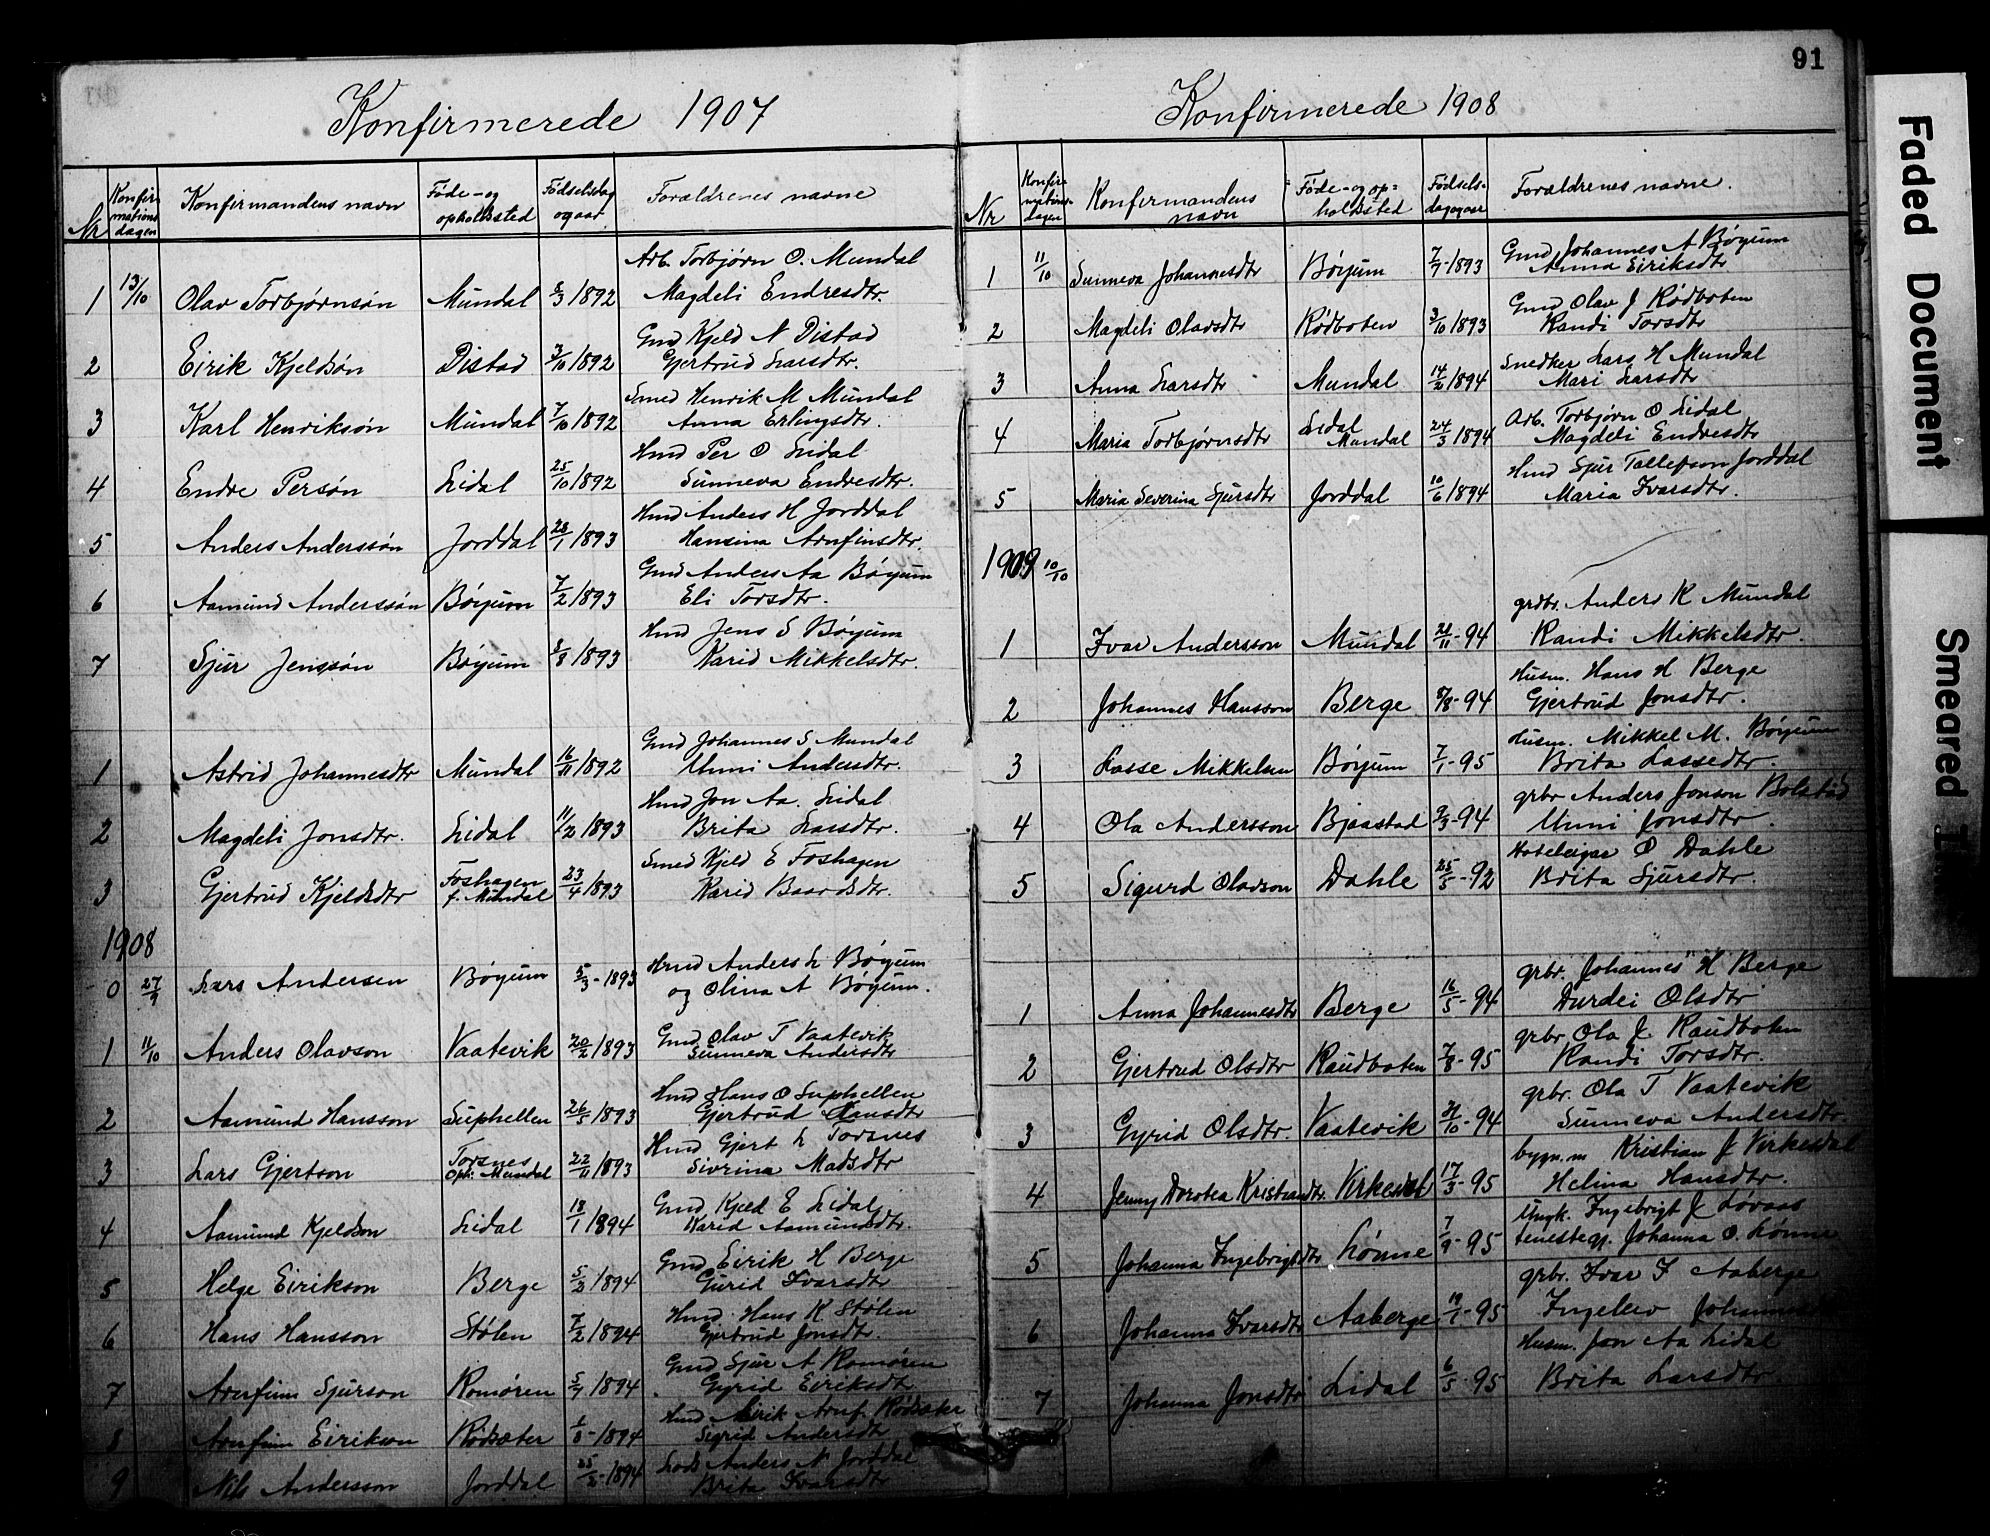 Konfirmerede 1907
Nr Konfirmations dagen Konfirmandens navn Føde- og opholdssted Fødselsdag og aar Forældrenes navne
Arb. Torbjørn O. Mundal
1 13/10 Olav Torbjørnsøn Mundal 3 1892 Magdeli Endresdtr.
Gmd Kjeld N Distad
2 Eirik Kjeldsøn Distad 3/10 1892 Gjertrud Larsdtr.
Smed Henrik M Mundal
3 Karl Henriksøn Mundal 7/10 1892 Anna Erlingsdtr.
Hmd Per O Lidal
4 Endre Persøn Lidal 25/10 1892 Sunneva Endresdtr.
Hmd Anders H Jorddal
5 Anders Anderssøn Jorddal 28/1 1893 Hansina Arnfinsdtr.
Gmd Anders Aa Bøyum
6 Aamund Anderssøn Bøyum 7/2 1893 Eli Torsdtr.
Hmd Jens S Bøyum
7 Sjur Jenssøn Bøyum 1893 Karid Mikkelsdtr.
Gmd Johannes S Mundal
1 Astrid Johannesdtr Mundal 16/11 1892 Unni Andersdtr.
Hmd Jon Aa. Lidal
2 Magdeli Jonsdtr. Lidal 11/2 1893 Brita Larsdtr.
Smed Kjeld E Foshagen
3 Gjertrud Kjeldsdtr Foshagen f. Mundal 23/4 1893 Karid Baardsdtr.
1908
0 27/9 Lars Andersen Bøyum 5/3-1893 Hmd Anders L Bøyum
og Olina A Bøyum.
1 11/10 Anders Olavson Vaatevik 20/2 1893 Gmd Olav T Vaatevik
Sunneva Andersdtr
Hmd Hans O Suphellen
2 Aamund Hansson Suphellen 26/5 1893 Gjertrud Hansdtr
Hmd Gjert L Torsnes
3 Lars Gjertson Torsnes Oph. Mundal 22/11 1893 Sivrina Madsdtr
Gmd Kjeld E Lidal
4 Aamund Kjeldson Lidal 18/1 1894 Karid Aamundsdtr.
Gmd Eirik H Berge
5 Helge Eirikson Berge 5/2 1894 Gurid Ivarsdtr
Hmd Hans K Stølen
6 Hans Hansson Stølen 7/2 1894 Gjertrud Jonsdtr
Gmd Sjur A Romøren
7 Arnfinn Sjurson Romøren 5/7 1894 Gyrid Eiriksdtr
Hmd Eirik Arnf. Rødsæter
8 Arnfinn Eirikson Rødsæter 1/8-1894 Sigrid Andersdtr
Lods Anders N Jorddal
9 Nils Andersson Jorddal 25/2-1894 Brita Ivarsdtr
91
Konfirmerede 1908
Nr Konfirmationsdagen Konfirmandens navn Føde- og opholdssted Fødselsdag og aar Forældrenes navne.
Gmd Johannes A Bøyum
1 11/10 Sunneva Johannesdtr Bøyum 7/7-1893 Anna Eiriksdtr
Gmd Olav J Rødboten
2 Magdeli Olavsdtr Rødboten 3/10 1893 Randi Torsdtr
Snedker Lars H Mundal
3 Anna Larsdtr Mundal 14/2 1894 Mari Larsdtr
Arb. Torbjørn O Lidal
4 Maria Torbjørnsdtr Lidal Mundal 24/3 1894 Magdeli Endresdtr
Hmd Sjur Tollefson Jorddal
5 Maria Severina Sjursdtr Jorddal 10/6 1894 Maria Ivarsdtr.
1909 10/10
grdbr. Anders K Mundal
1 Ivar Andersson Mundal 21/11-94 Randi Mikkelsdtr.
Husm. Hans H Berge
2 Johannes Hansson Berge 5/8-94 Gjertrud Jonsdtr.
Husm. Mikkel M. Bøyum
3 Lasse Mikkelsen Bøyum 7/1-95 Brita Lassedtr.
grbr Anders Jonson Bolstad
4 Ola Andersson Bjaastad 9/3-94 Unni Jonsdtr.
Hoteleigar O Dahle
5 Sigurd Olavson Dahle 25/5-92 Brita Sjursdtr.
grbr. Johannes H Berge
1 Anna Johannesdtr Berge 16/5-94 Durdei Olsdtr
grbr. Ola J. Raudboten
2 Gjertrud Olsdtr Raudboten 7/8-95 Randi Torsdtr.
grbr. Ola T Vaatevik
3 Gyrid Olsdtr. Vaatevik 31/10-94 Sunneva Andersdtr.
bygn.m Kristian J Virkesdal
4 Jenny Dorotea Kristiandtr. Virkesdal 17/3-95 Helina Hansdtr.
Ungk. Ingebrigt J Lovaas
5 Johanna Ingebrigtsdtr Lønne 7/9-95 tenestegj. Johanna O. Lønne
grbr. Ivar J Aaberge
6 Johanna Ivarsdtr Aaberge 19/1-95 Ingelev
Husm. Jon Aa Lidal
7 Johanna Jonsdtr Lidal 6/5-95 Brita Larsdtr.
Faded Document
Smeared